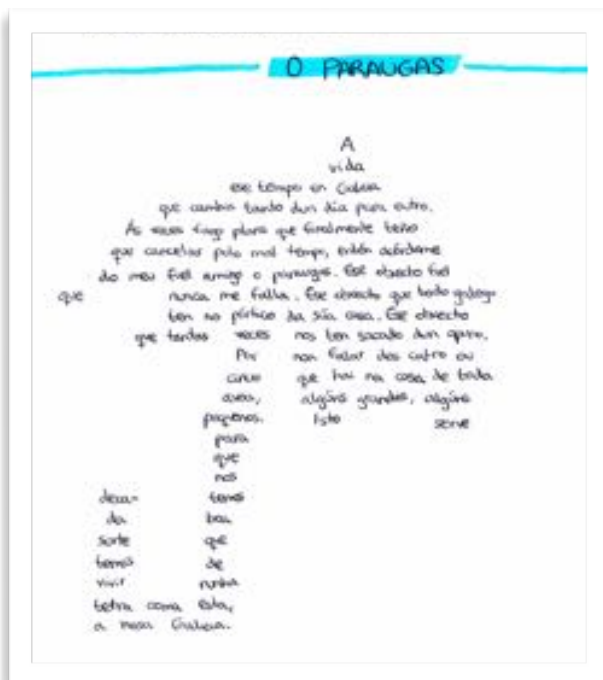 O PARAUGAS
A
vida
ese tempo en Galicia
que cambia tanto dun día para outro.
Ás veces fago plans que finalmente teño
que cancelar polo mal tempo, entón acórdome
do meu fiel amigo o paraugas. Ese obxecto fiel
que nunca me falla. Ese obxecto que todo galego
ten no pórtico da súa casa. Ese obxecto
que tantas veces nos ten sacado dun apuro.
Por non falar dos catro ou
cinco que hai na casa de toda
avoa, algúns grandes, algúns
pequenos. Isto serve
para
que
nos
decatemos
da boa
sorte que
temos de
vivir nunha
terra coma esta,
a nosa Galicia.